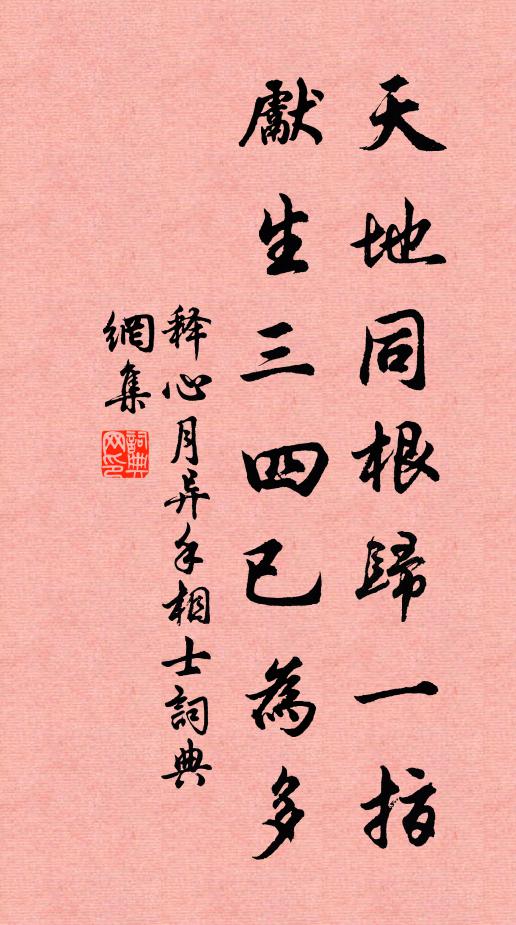 天地同根歸一指
獻生三四已為多
释心月异手相士詞典
網集
詞典
网印